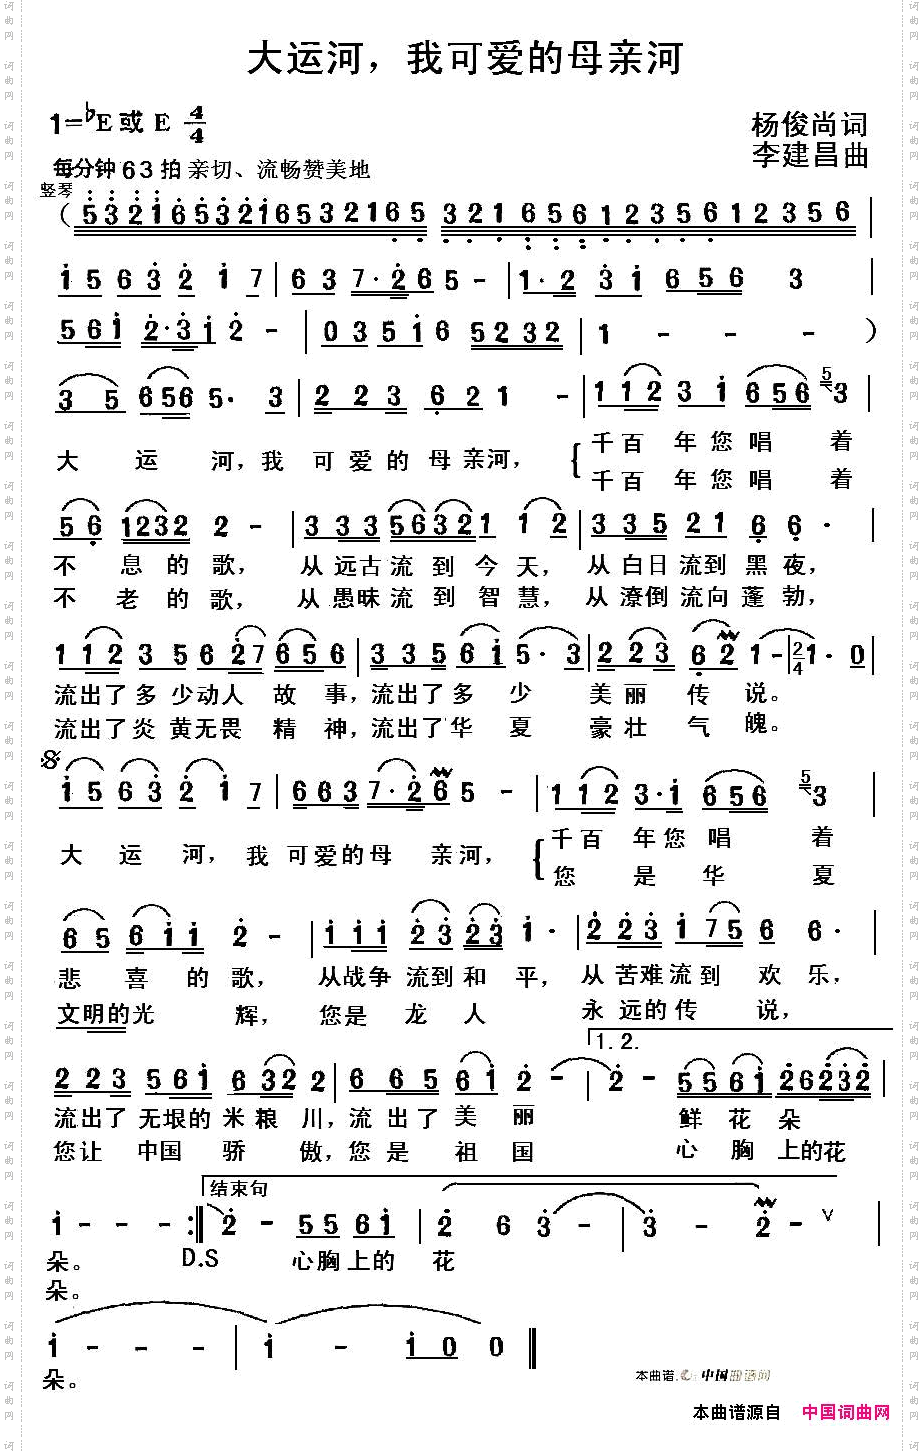 大运河，我可爱的母亲河
1=♭E 或 E 4/4
杨俊尚词
李建昌曲
每分钟 63 拍 亲切、流畅赞美地
竖琴
( 5 3 2 1 6 5 3 2 1 6 5 3 2 1 6 5 3 2 1 6 5 6 1 2 3 5 6 1 2 3 5 6 |
1 5 6 3 2 1 7 | 6 3 7 · 2 6 5 - | 1 · 2 3 1 6 5 6 3 |
5 6 1 2 · 3 1 2 - | 0 3 5 1 6 5 2 3 2 | 1 - - - )
3 5 6 5 6 5 · 3 | 2 2 3 6 2 1 - | 1 1 2 3 1 6 5 6 5 3 |
大 运 河，我 可 爱 的 母 亲 河， { 千 百 年 您 唱 着
千 百 年 您 唱 着
5 6 1 2 3 2 2 - | 3 3 3 5 6 3 2 1 1 2 | 3 3 5 2 1 6 6 ·
不 息 的 歌， 从 远 古 流 到 今 天， 从 白 日 流 到 黑 夜，
不 老 的 歌， 从 愚 昧 流 到 智 慧， 从 潦 倒 流 向 蓬 勃，
1 1 2 3 5 6 2 7 6 5 6 | 3 3 5 6 1 5 · 3 | 2 2 3 6 2 1 - | 2/4 1 · 0 |
流 出 了 多 少 动 人 故 事，流 出 了 多 少 美 丽 传 说。
流 出 了 炎 黄 无 畏 精 神，流 出 了 华 夏 豪 壮 气 魄。
1 5 6 3 2 1 7 | 6 6 3 7 · 2 6 5 - | 1 1 2 3 · 1 6 5 6 5 3 |
大 运 河， 我 可 爱 的 母 亲 河， { 千 百 年 您 唱 着
您 是 华 夏
6 5 6 1 1 2 - | 1 1 1 2 3 2 3 1 · | 2 2 3 1 7 5 6 6 · |
悲 喜 的 歌， 从 战 争 流 到 和 平， 从 苦 难 流 到 欢 乐，
文 明 的 光 辉， 您 是 龙 人 永 远 的 传 说，
1. 2.
2 2 3 5 6 1 6 3 2 2 | 6 6 5 6 1 2 - | 2 - 5 5 6 1 2 6 2 3 2 |
流 出 了 无 垠 的 米 粮 川，流 出 了 美 丽 鲜 花 朵
您 让 中 国 骄 傲，您 是 祖 国 心 胸 上 的 花
结束句
1 - - - :‖ 2 - 5 5 6 1 | 2 6 3 - | 3 - 2 - ∨ |
朵。 D.S 心 胸 上 的 花
朵。
1 - - - | 1 1 0 0 ‖
朵。
本曲谱 中国曲谱网
本曲谱源自 中国词曲网